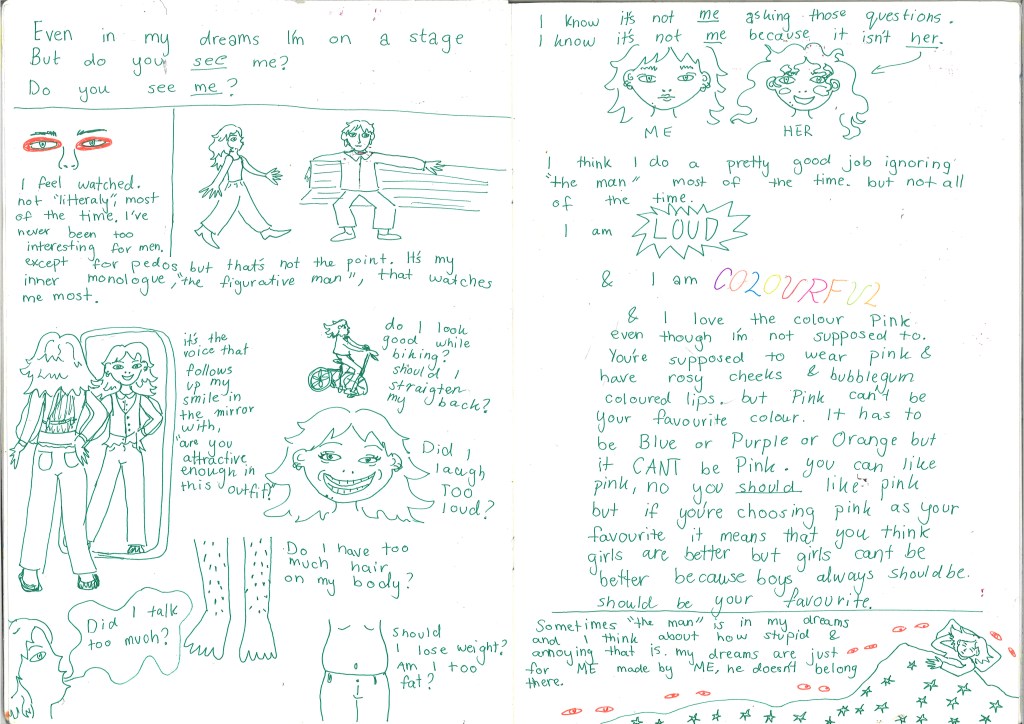 Even in my dreams I'm on a stage
But do you see me?
Do you see me?
I feel watched.
not "litteraly", most
of the time. I've
never been too
interesting for men.
except for pedos, but that's not the point. It's my
inner monologue, "the figurative man", that watches
me most.
it's the
voice that
follows
up my
smile in
the mirror
with,
"are you
attractive
enough in
this outfit?"
do I look
good while
biking?
should I
straigten
my back?
Did I
laugh
TOO
loud?
Do I have too
much hair
on my body?
Did I talk
too much?
Should
I lose weight?
Am I too
fat?
I know it's not me asking those questions.
I know it's not me because it isn't her.
ME
HER
I think I do a pretty good job ignoring
"the man" most of the time. but not all
of the time.
I am LOUD
& I am COLOURFUL
& I love the colour Pink
even though I'm not supposed to.
You're supposed to wear pink &
have rosy cheeks & bubblegum
coloured lips. but Pink can't be
your favourite colour. It has to
be Blue or Purple or Orange but
it CANT be Pink. you can like
pink, no you should like pink
but if you're choosing pink as your
favourite it means that you think
girls are better but girls cant be
better because boys always should be.
should be your favourite.
Sometimes "the man" is in my dreams
and I think about how stupid &
annoying that is. my dreams are just
for ME made by ME, he doesn't belong
there.